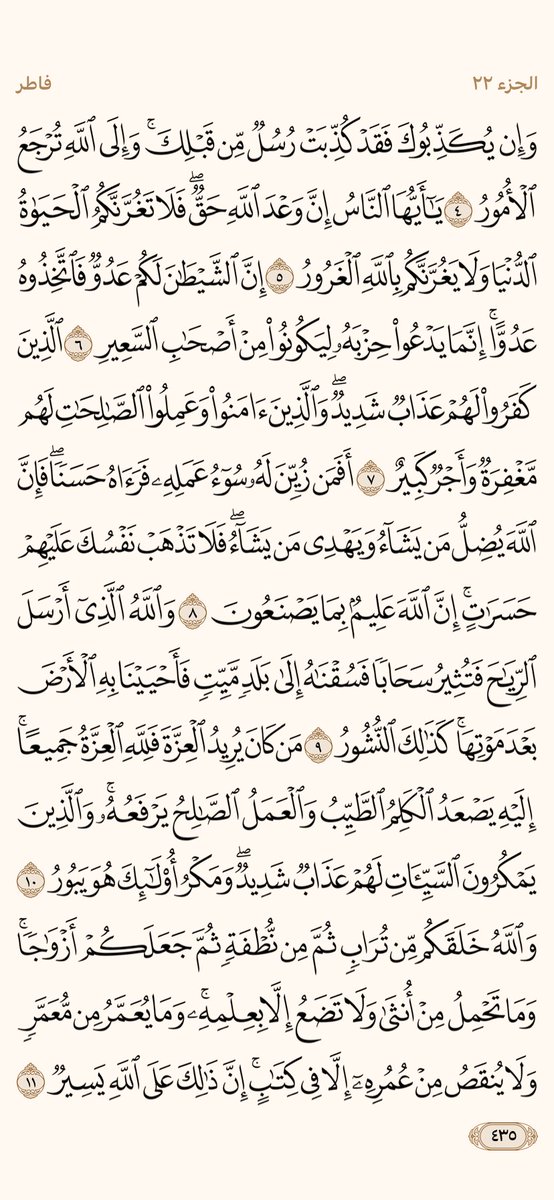 الجزء ٢٢
فاطر
وَإِن يُكَذِّبُوكَ فَقَدْ كُذِّبَتْ رُسُلٌ مِّن قَبْلِكَ ۚ وَإِلَى ٱللَّهِ تُرْجَعُ
ٱلْأُمُورُ ٤ يَـٰٓأَيُّهَا ٱلنَّاسُ إِنَّ وَعْدَ ٱللَّهِ حَقٌّ ۖ فَلَا تَغُرَّنَّكُمُ ٱلْحَيَوٰةُ
ٱلدُّنْيَا وَلَا يَغُرَّنَّكُم بِٱللَّهِ ٱلْغَرُورُ ٥ إِنَّ ٱلشَّيْطَـٰنَ لَكُمْ عَدُوٌّ فَٱتَّخِذُوهُ
عَدُوًّا ۚ إِنَّمَا يَدْعُوا۟ حِزْبَهُۥ لِيَكُونُوا۟ مِنْ أَصْحَـٰبِ ٱلسَّعِيرِ ٦ ٱلَّذِينَ
كَفَرُوا۟ لَهُمْ عَذَابٌ شَدِيدٌ ۖ وَٱلَّذِينَ ءَامَنُوا۟ وَعَمِلُوا۟ ٱلصَّـٰلِحَـٰتِ لَهُم
مَّغْفِرَةٌ وَأَجْرٌ كَبِيرٌ ٧ أَفَمَن زُيِّنَ لَهُۥ سُوٓءُ عَمَلِهِۦ فَرَءَاهُ حَسَنًا ۖ فَإِنَّ
ٱللَّهَ يُضِلُّ مَن يَشَآءُ وَيَهْدِى مَن يَشَآءُ ۖ فَلَا تَذْهَبْ نَفْسُكَ عَلَيْهِمْ
حَسَرَٰتٍ ۚ إِنَّ ٱللَّهَ عَلِيمٌۢ بِمَا يَصْنَعُونَ ٨ وَٱللَّهُ ٱلَّذِىٓ أَرْسَلَ
ٱلرِّيَـٰحَ فَتُثِيرُ سَحَابًا فَسُقْنَـٰهُ إِلَىٰ بَلَدٍ مَّيِّتٍ فَأَحْيَيْنَا بِهِ ٱلْأَرْضَ
بَعْدَ مَوْتِهَا ۚ كَذَٰلِكَ ٱلنُّشُورُ ٩ مَن كَانَ يُرِيدُ ٱلْعِزَّةَ فَلِلَّهِ ٱلْعِزَّةُ جَمِيعًا ۚ
إِلَيْهِ يَصْعَدُ ٱلْكَلِمُ ٱلطَّيِّبُ وَٱلْعَمَلُ ٱلصَّـٰلِحُ يَرْفَعُهُۥ ۚ وَٱلَّذِينَ
يَمْكُرُونَ ٱلسَّيِّـَٔاتِ لَهُمْ عَذَابٌ شَدِيدٌ ۖ وَمَكْرُ أُو۟لَـٰٓئِكَ هُوَ يَبُورُ ١٠
وَٱللَّهُ خَلَقَكُم مِّن تُرَابٍ ثُمَّ مِن نُّطْفَةٍ ثُمَّ جَعَلَكُمْ أَزْوَٰجًا ۚ
وَمَا تَحْمِلُ مِنْ أُنثَىٰ وَلَا تَضَعُ إِلَّا بِعِلْمِهِۦ ۚ وَمَا يُعَمَّرُ مِن مُّعَمَّرٍ
وَلَا يُنقَصُ مِنْ عُمُرِهِۦٓ إِلَّا فِى كِتَـٰبٍ ۚ إِنَّ ذَٰلِكَ عَلَى ٱللَّهِ يَسِيرٌ ١١
٤٣٥